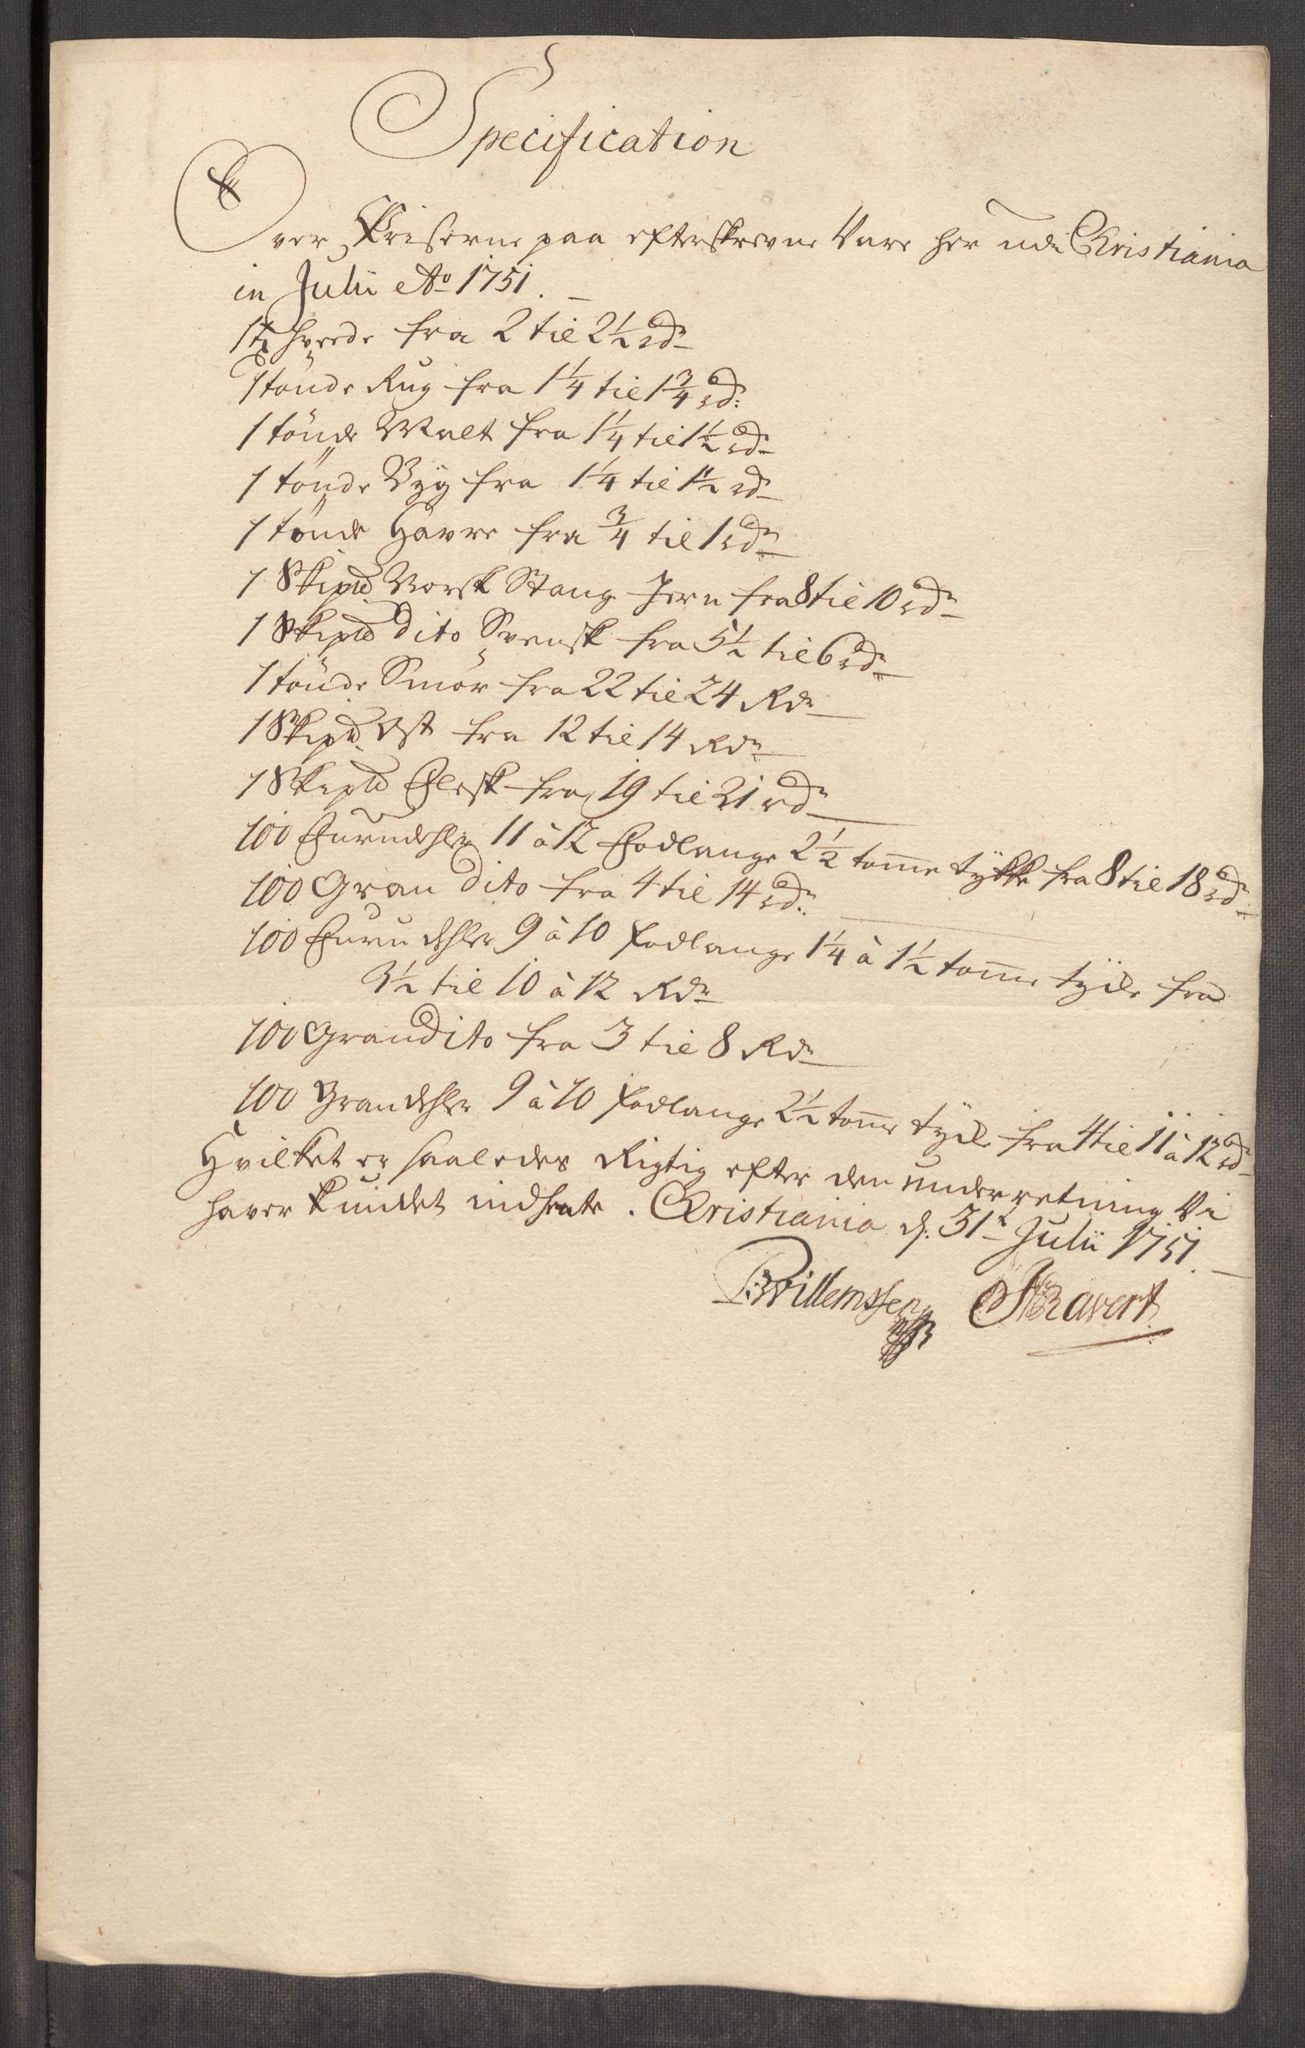 Specification
Over Priserne paa efterskrevne Vare her udi Christiania
in Julii Ao 1751.
1 tø hvede fra 2 til 2½ rdr
1 tönde Rug fra 1¼ til 1¾ rd:
1 tönde Malt fra 1¼ til 1½ rdr
1 tönde Byg fra 1¼ til 1½ rdr
1 tönde Havre fra ¾ til 1 rdr
1 Skipd Norsk Stang Jern fra 8 til 10 rdr
1 Skipd dito Svensk fra 5½ til 6 rdr
1 tönde Smör fra 22 til 24 Rdr
1 Skipd. Ost fra 12 til 14 Rdr
1 Skipd Flesk fra 19 til 21 rdr
100 Furudehler 11 à 12 Fodlange 2½ tomme tykke fra 8 til 18 rdr
100 Gran dito fra 4 til 14 rdr.
100 Furu dehler 9 à 10 fodlange 1¼ à 1½ tomme tycke fra
3½ til 10 à 12 Rdr
100 Gran dito fra 3 til 8 Rdr
100 Grandehler 9 à 10 fodlange 2½ tomme tycke fra 4 til 11 à 12 rdr
Hvilket er saaledes Rigtig efter den underretning Vi
haver kundet indhente. Christiania d: 31te Julii 1751.
Willemssen Ravert